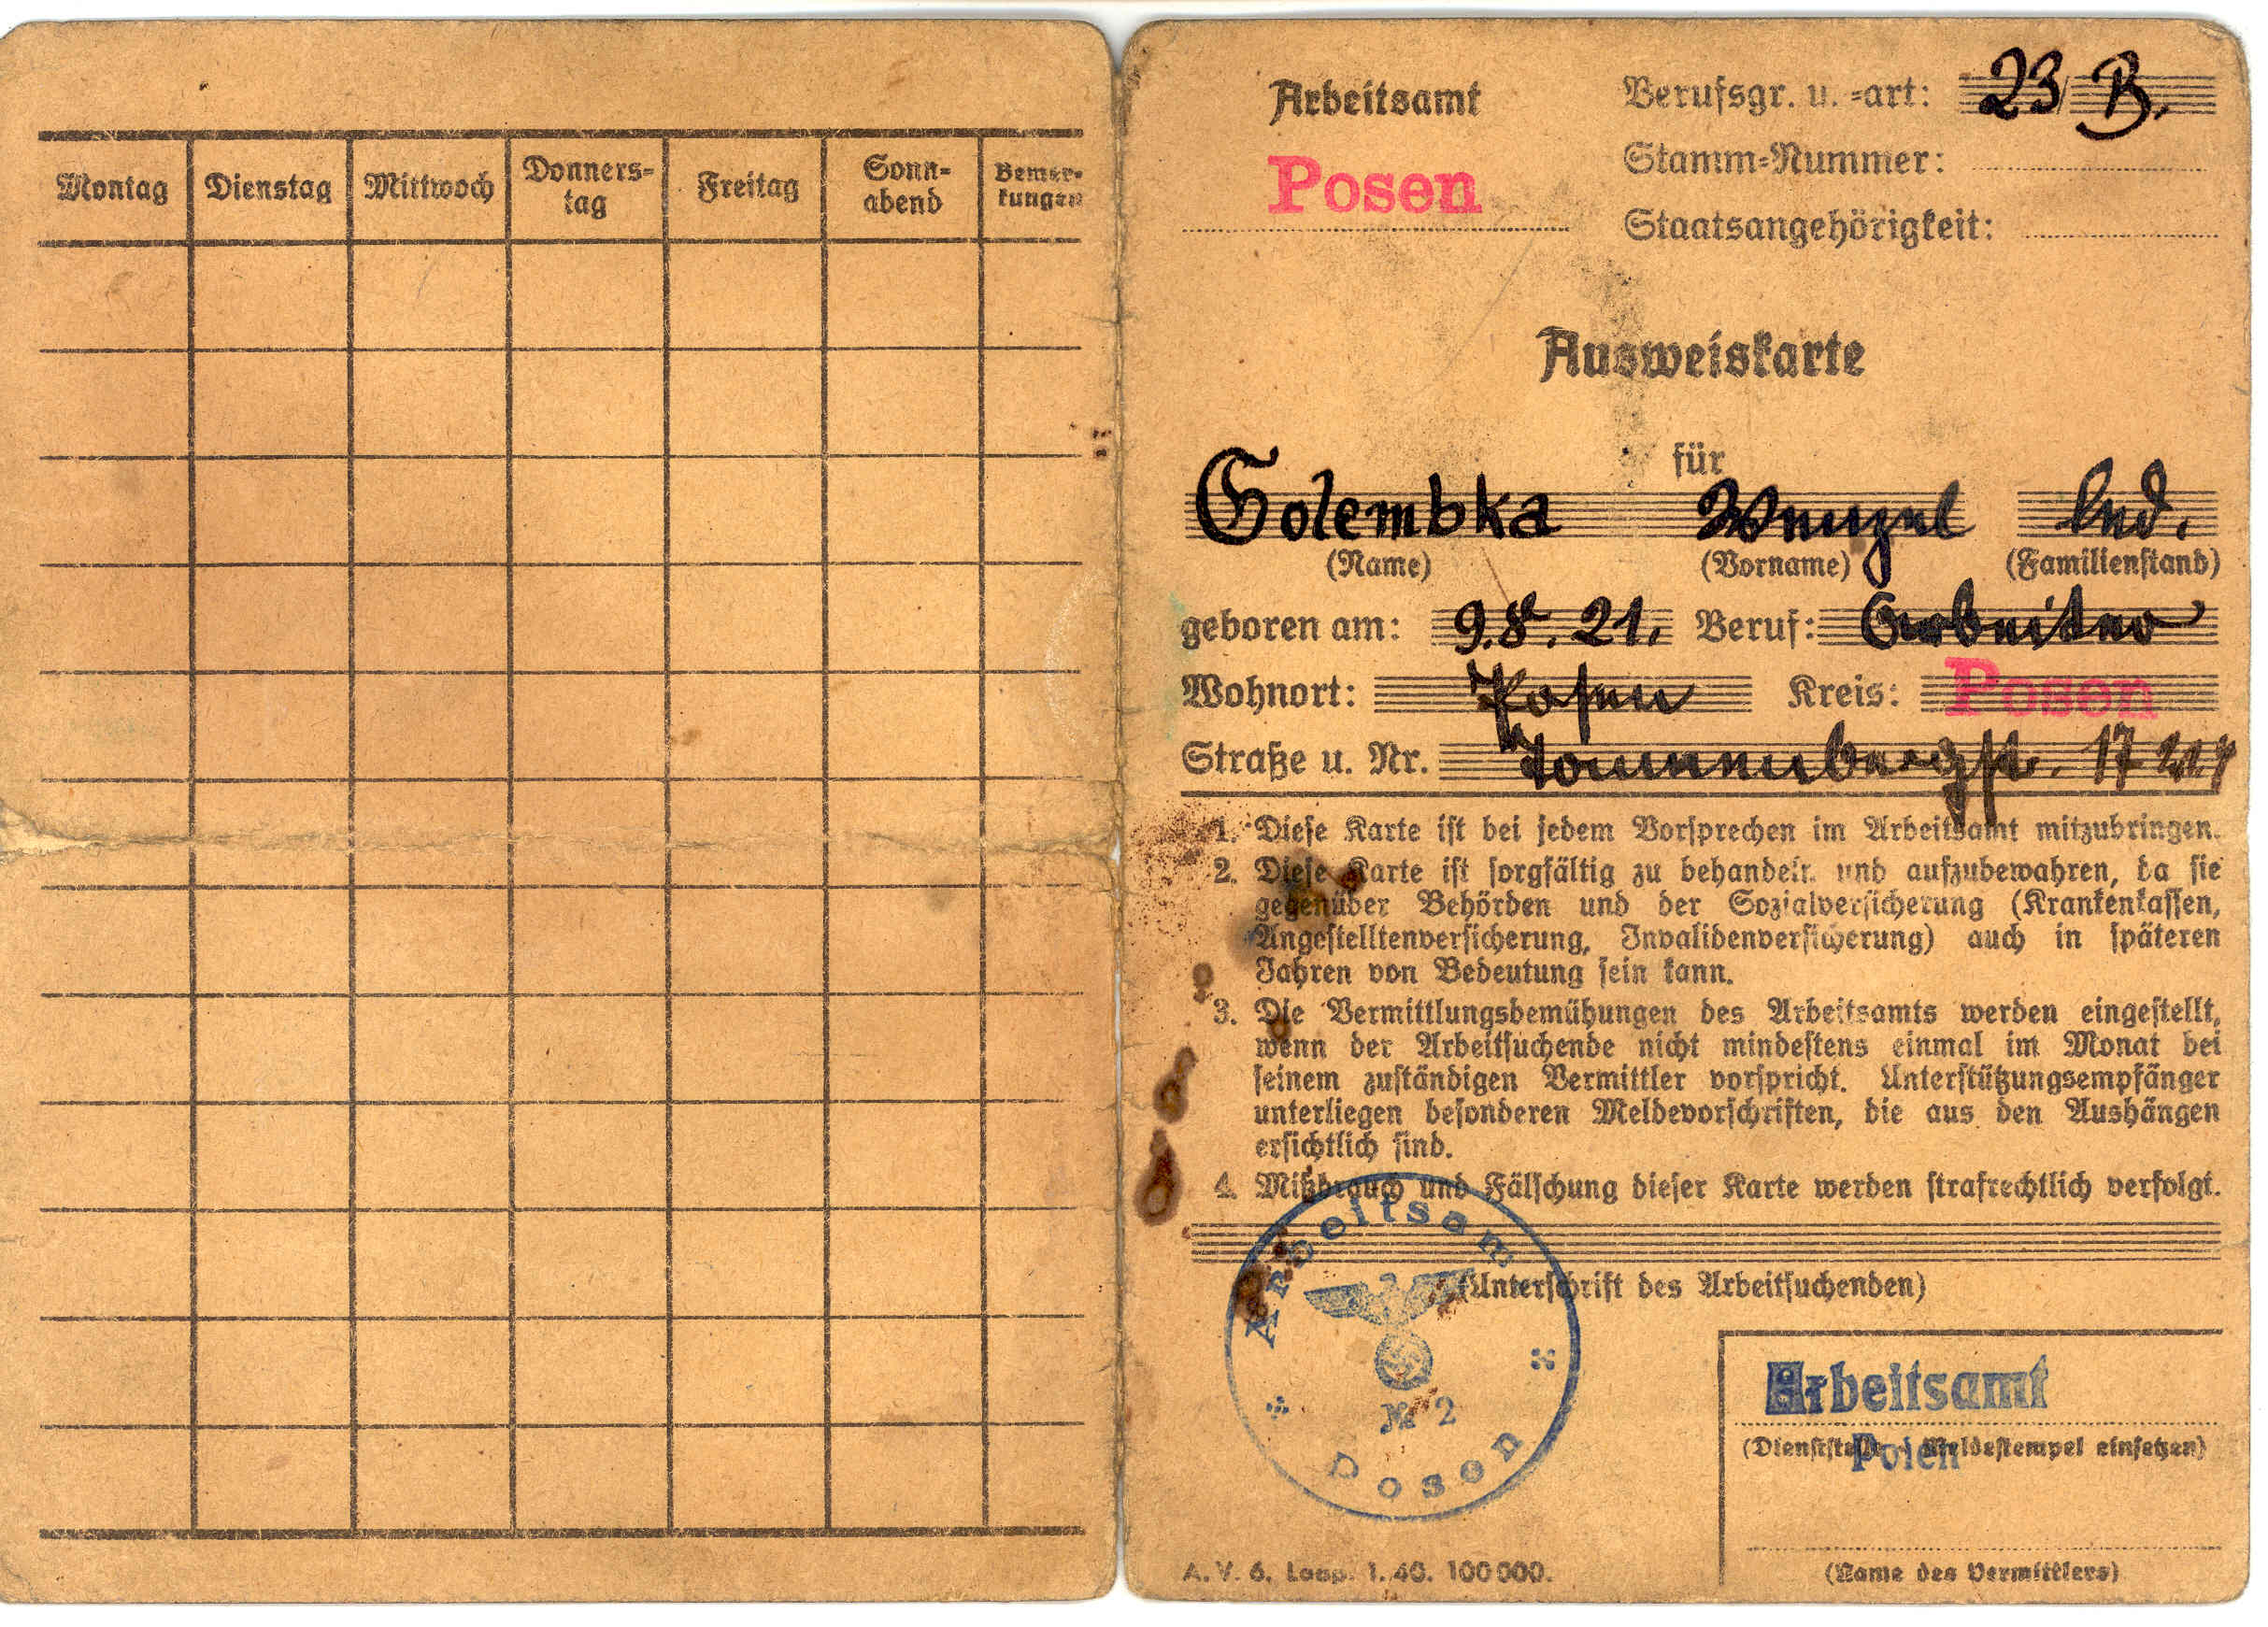 Montag Dienstag Mittwoch Donners= Freitag Sonn= Bemer=
tag abend kungen
Arbeitsamt
Posen
Berufsgr. u. =art: 23 B.
Stamm=Nummer:
Staatsangehörigkeit:
Ausweiskarte
für
Golembka Wenzel led.
(Name) (Vorname) (Familienstand)
geboren am: 9.8.21. Beruf: Arbeiter
Wohnort: Posen Kreis: Posen
Straße u. Nr. 17
1. Diese Karte ist bei jedem Vorsprechen im Arbeitsamt mitzubringen.
2. Diese Karte ist sorgfältig zu behandeln und aufzubewahren, da sie
gegenüber Behörden und der Sozialversicherung (Krankenkassen,
Angestelltenversicherung, Invalidenversicherung) auch in späteren
Jahren von Bedeutung sein kann.
3. Die Vermittlungsbemühungen des Arbeitsamts werden eingestellt,
wenn der Arbeitsuchende nicht mindestens einmal im Monat bei
seinem zuständigen Vermittler vorspricht. Unterstützungsempfänger
unterliegen besonderen Meldevorschriften, die aus den Aushängen
ersichtlich sind.
4. Mißbrauch und Fälschung dieser Karte werden strafrechtlich verfolgt.
(Unterschrift des Arbeitsuchenden)
Arbeitsam
№ 2
Posen
Arbeitsamt
(Dienststelle Meldestempel einsetzen)
Posen
(Name des Vermittlers)
A. V. 6. 1. 40. 100 000.